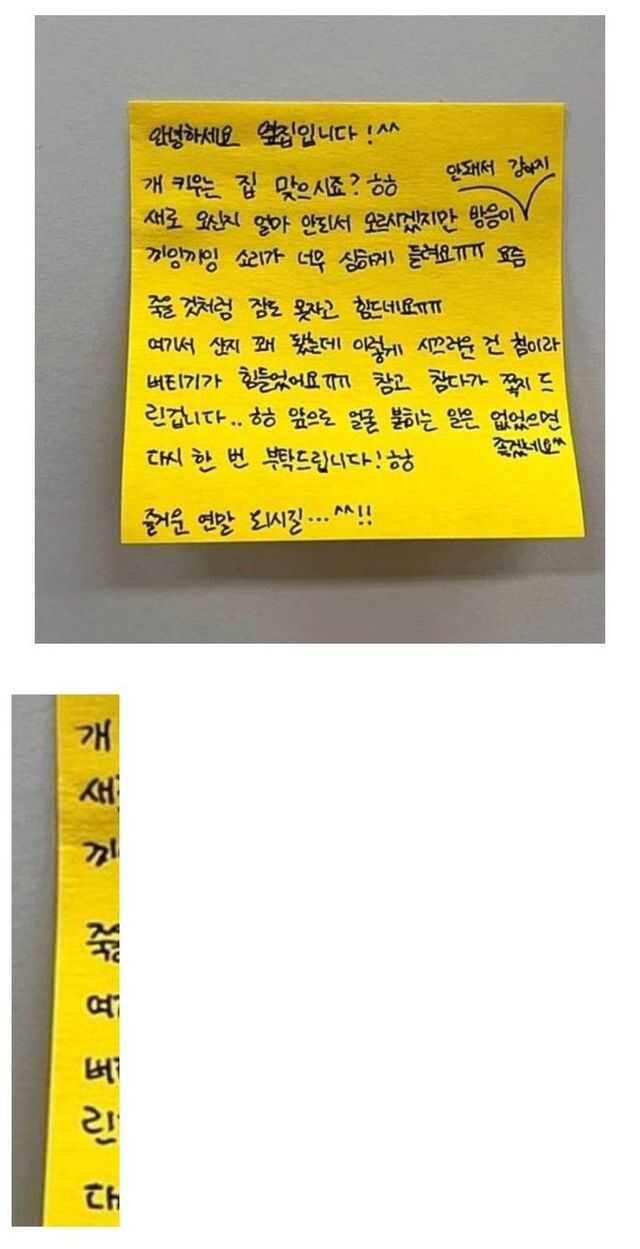 안녕하세요 옆집입니다!^^
개 키우는 집 맞으시죠? ㅎㅎ
안돼서 강아지
새로 오신지 얼마 안되서 모르시겠지만 방음이
끼잉끼잉 소리가 너무 심하게 들려요ㅠㅠ 요즘
죽을 것처럼 잠도 못자고 힘드네요ㅠㅠ
여기서 산지 꽤 됐는데 이렇게 시끄러운 건 첨이라
버티기가 힘들었어요ㅠㅠ 참고 참다가 쪽지 드
린겁니다.. ㅎㅎ 앞으로 얼굴 붉히는 일은 없었으면
좋겠네요^^
다시 한 번 부탁드립니다! ㅎㅎ
즐거운 연말 되시길...^^!!
개
새
끼
죽
여
버
린
다